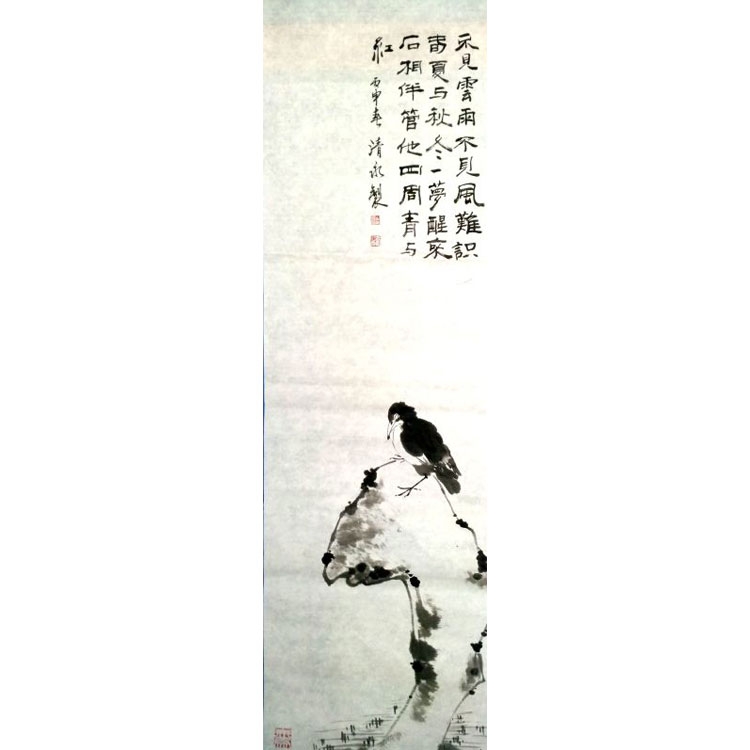 不見雲雨不見風難识
春夏与秋冬一夢醒來
石相伴管他四周青与
紅 丙申春 清泉製